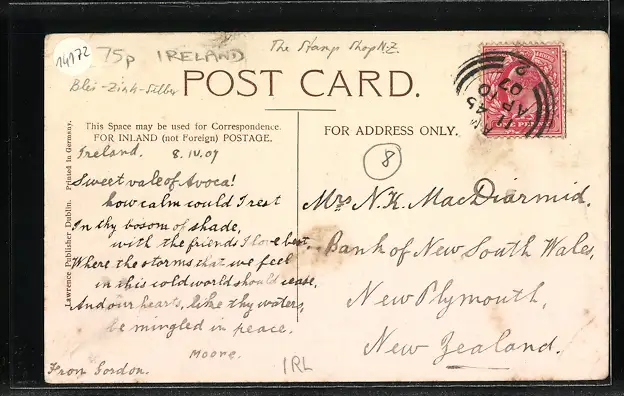 14172
75p IRELAND
The Stamp Shop N.Z.
Blei-Zink-Silber
POST CARD.
ONE PENNY
11 45 AM
AP
07
This Space may be used for Correspondence.
FOR INLAND (not Foreign) POSTAGE.
FOR ADDRESS ONLY.
Printed in Germany.
Lawrence Publisher Dublin.
Ireland. 8.IV.07
Sweet vale of Avoca!
how calm could I rest
In thy bosom of shade,
with the friends I love best.
Where the storms that we feel
in this cold world should cease,
And our hearts, like thy waters,
be mingled in peace.
Moore.
From Gordon.
IRL
8
Mrs N.K. MacDiarmid.
Bank of New South Wales,
New Plymouth,
New Zealand.